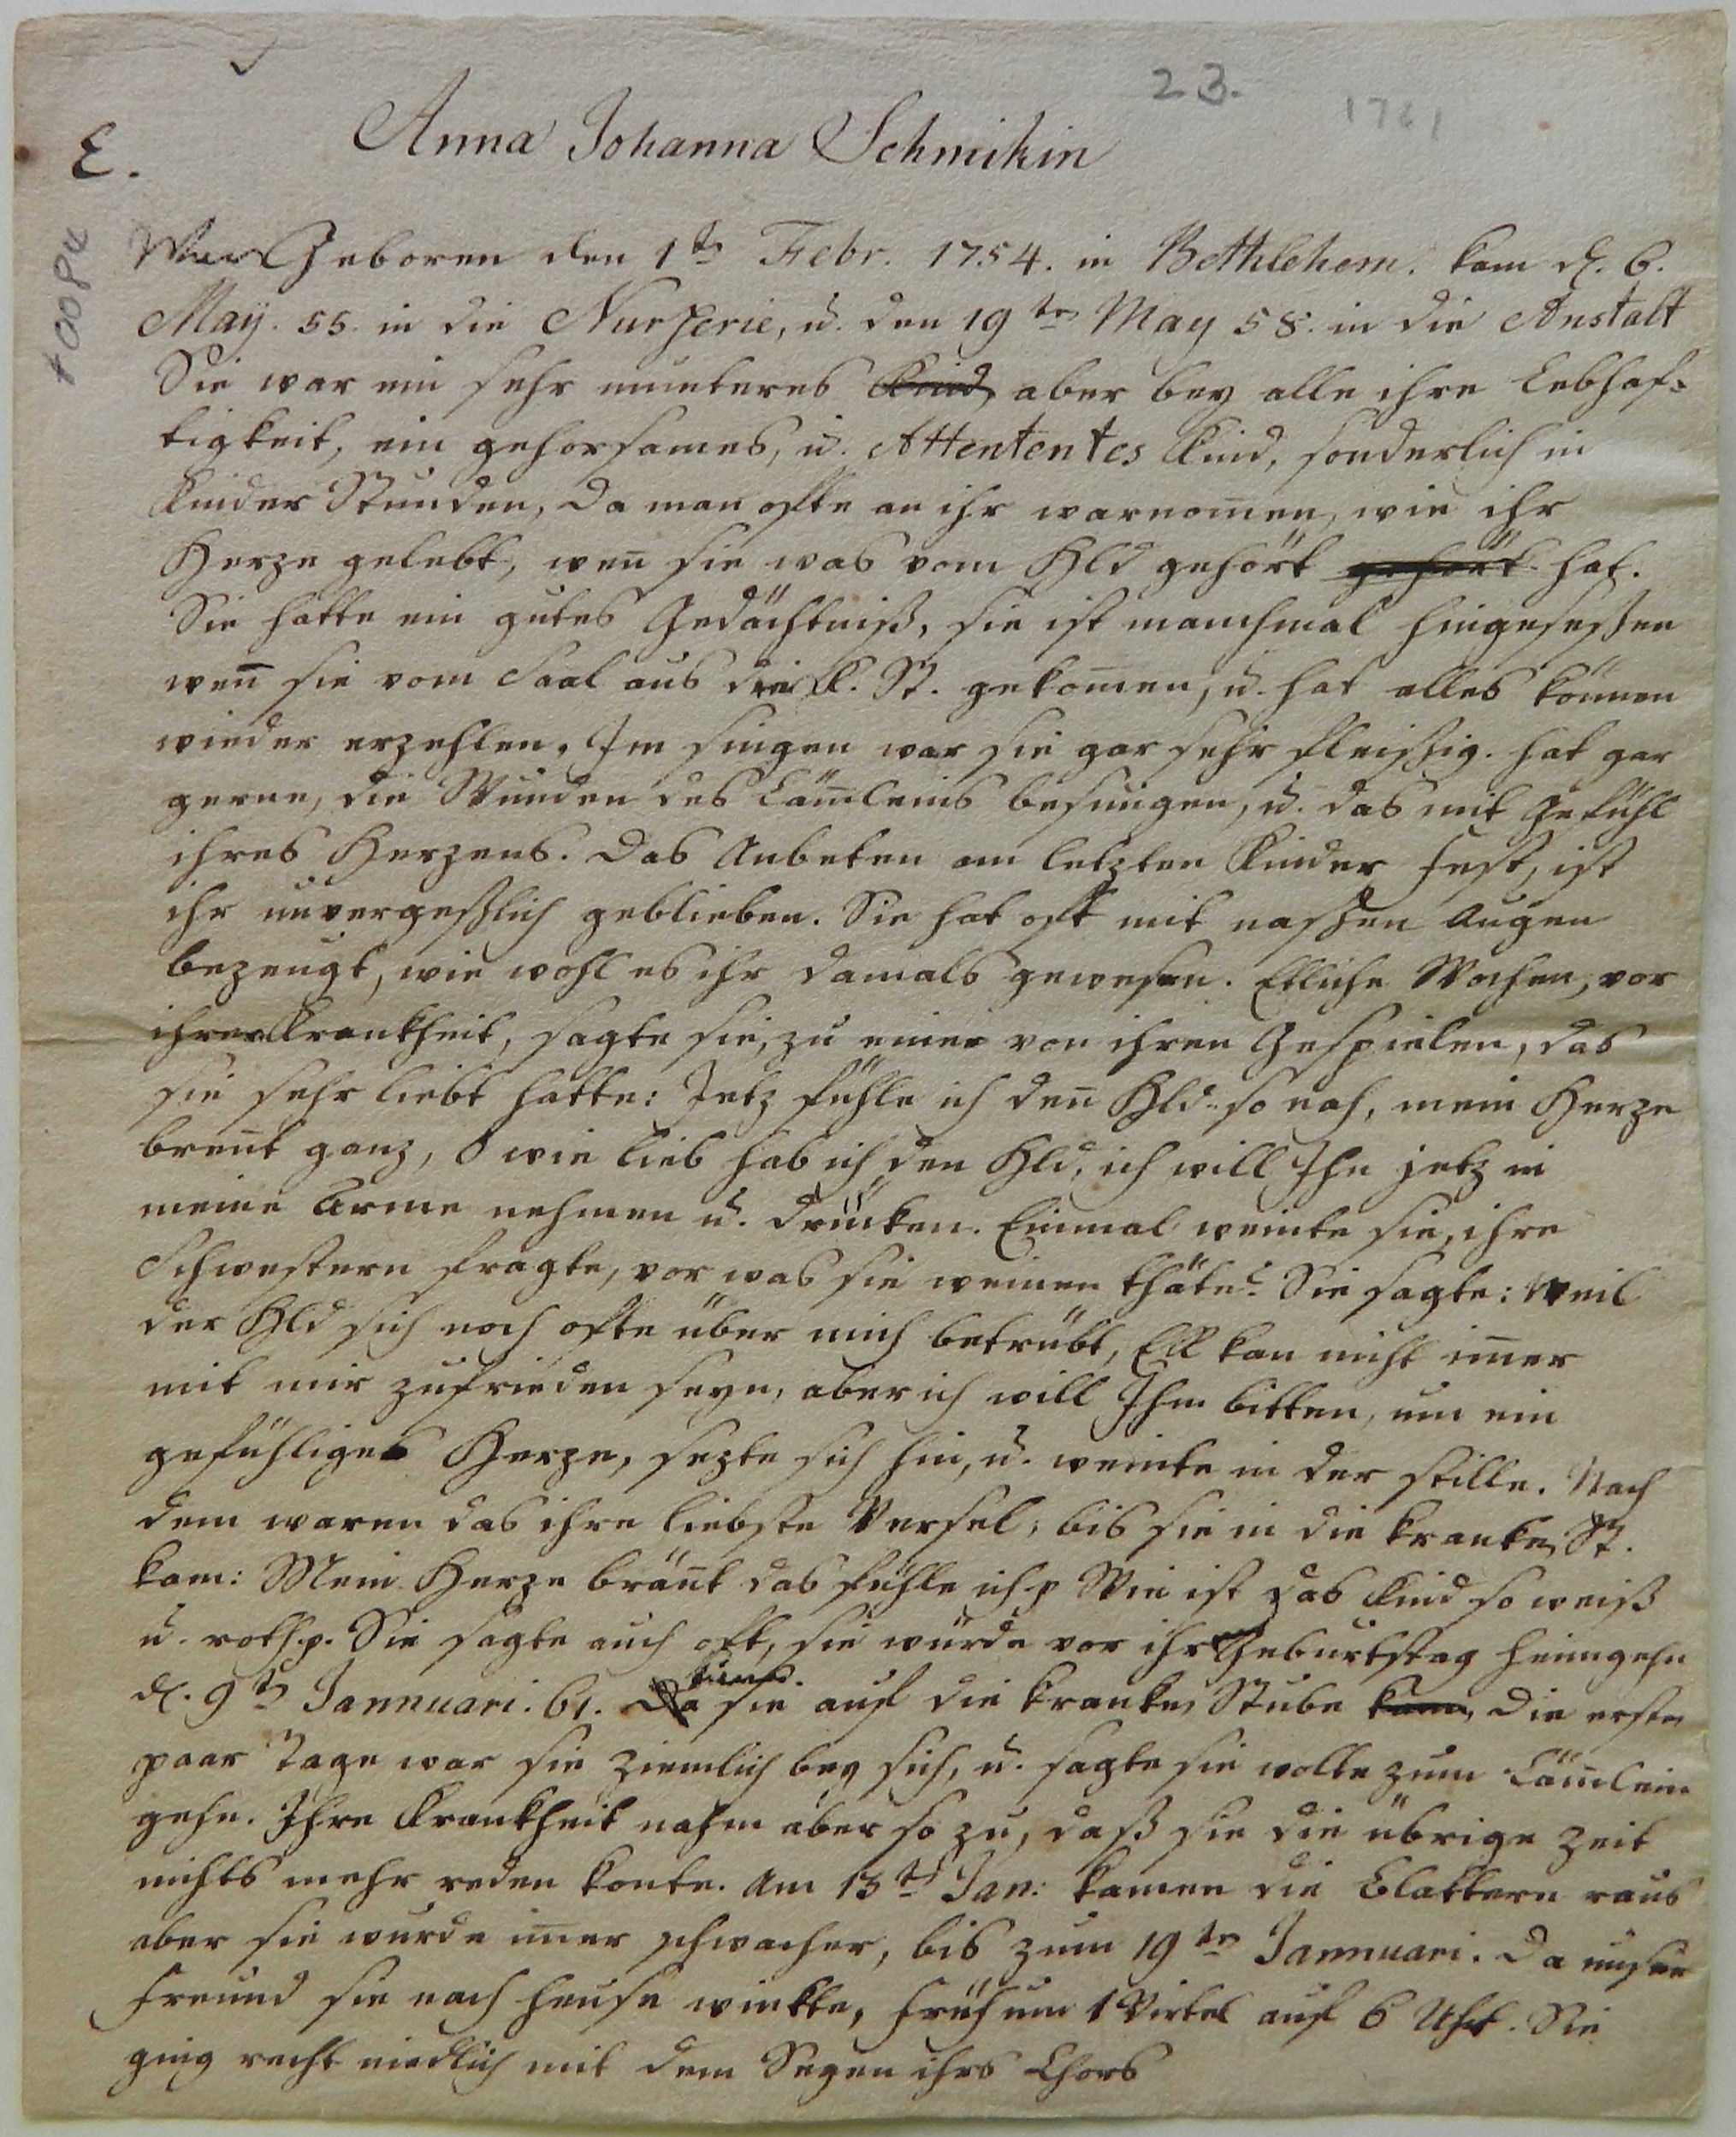 23.
1761
Anna Johanna Schmikin
E.
+0084
War Geboren den 1tn Febr. 1754. in Bethlehem. kam d. 6.
May. 55. in die Nurserie, u. den 19tn May 58. in die Anstalt
Sie war ein sehr munteres Kind, aber bey alle ihre Lebhaf-
tigkeit, ein gehorsames, u. Attententes Kind, sonderlich in
Kinder Stunden, Da man offte an ihr warnom̅en, wie ihr
Herze gelebt, wen̅ sie was vom Hld gehört gehört hat.
Sie hatte ein gutes Gedächtniß, sie ist manchmal hingeseßen
wen̅ sie vom Saal aus die K. St. gekom̅en, u. hat alles können
wieder erzehlen. Im singen war sie gar sehr fleißig. hat gar
gerne, die Wunden des Läm̅leins besungen, u. das mit Gefühl
ihres Herzens. Das Anbeten am letzten Kinder Fest, ist
ihr unvergeßlich geblieben. Sie hat oft mit naßen Augen
bezeugt, wie wohl es ihr damals gewesen. Etliche Wochen, vor
ihrer Krankheit, sagte sie, zu einer von ihren Gespielen, das
sie sehr liebt hatte: Jetz fühle ich den̅ Hld. so nah, mein Herze
bren̅t ganz, O wie lieb hab ich den Hld, ich will Ihn jetz in
meine Arme nehmen u. drücken. Einmal weinte sie, ihre
Schwestern fragte, vor was sie weinen thäte? Sie sagte: Weil
der Hld sich noch ofte über mich betrübt, ER kan nicht im̅er
mit mir zufrieden seyn, aber ich will Ihm bitten, um ein
gefühliges Herze, sezte sich hin, u. weinte in der stille. Nach
dem waren das ihre liebste Versel, bis sie in die kranken St.
kam: Mein Herze brän̅t das fühle ich p Wie ist das Kind so weiß
u. roth p. Sie sagte auch oft, sie würde vor ihr Geburtstag heimgehn
d. 9tn Jannuari. 61. Da kam sie auf die kranken Stube kam, Die ersten
paar Tage war sie ziemlich bey sich, u. sagte sie wolte zum Läm̅lein
gehn. Ihre Krankheit nahm aber so zu, daß sie die übrige Zeit
nichts mehr reden konte. Am 13tn Jan: kamen die Blattern raus
aber sie wurde im̅er schwacher, bis zum 19tn Jannuari. Da unser
Freund sie nach hause winkte, früh um 1 Virtel auf 6 Uhr. Sie
ging recht niedlich mit dem Segen ihrs Chors